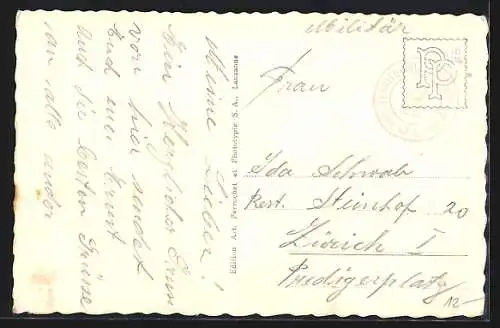 Meine Lieben!
Ein Herzlicher Gruss
von hier sendet
Euch euer Ernst
und die besten Grüsse
an alle andern
Edition Art. Perrochet et Phototypie S. A., Lausanne
Militär
PP
Frau
Ida Schwab
Rest. Steinhof 20
Zürich I
Predigerplatz
12-